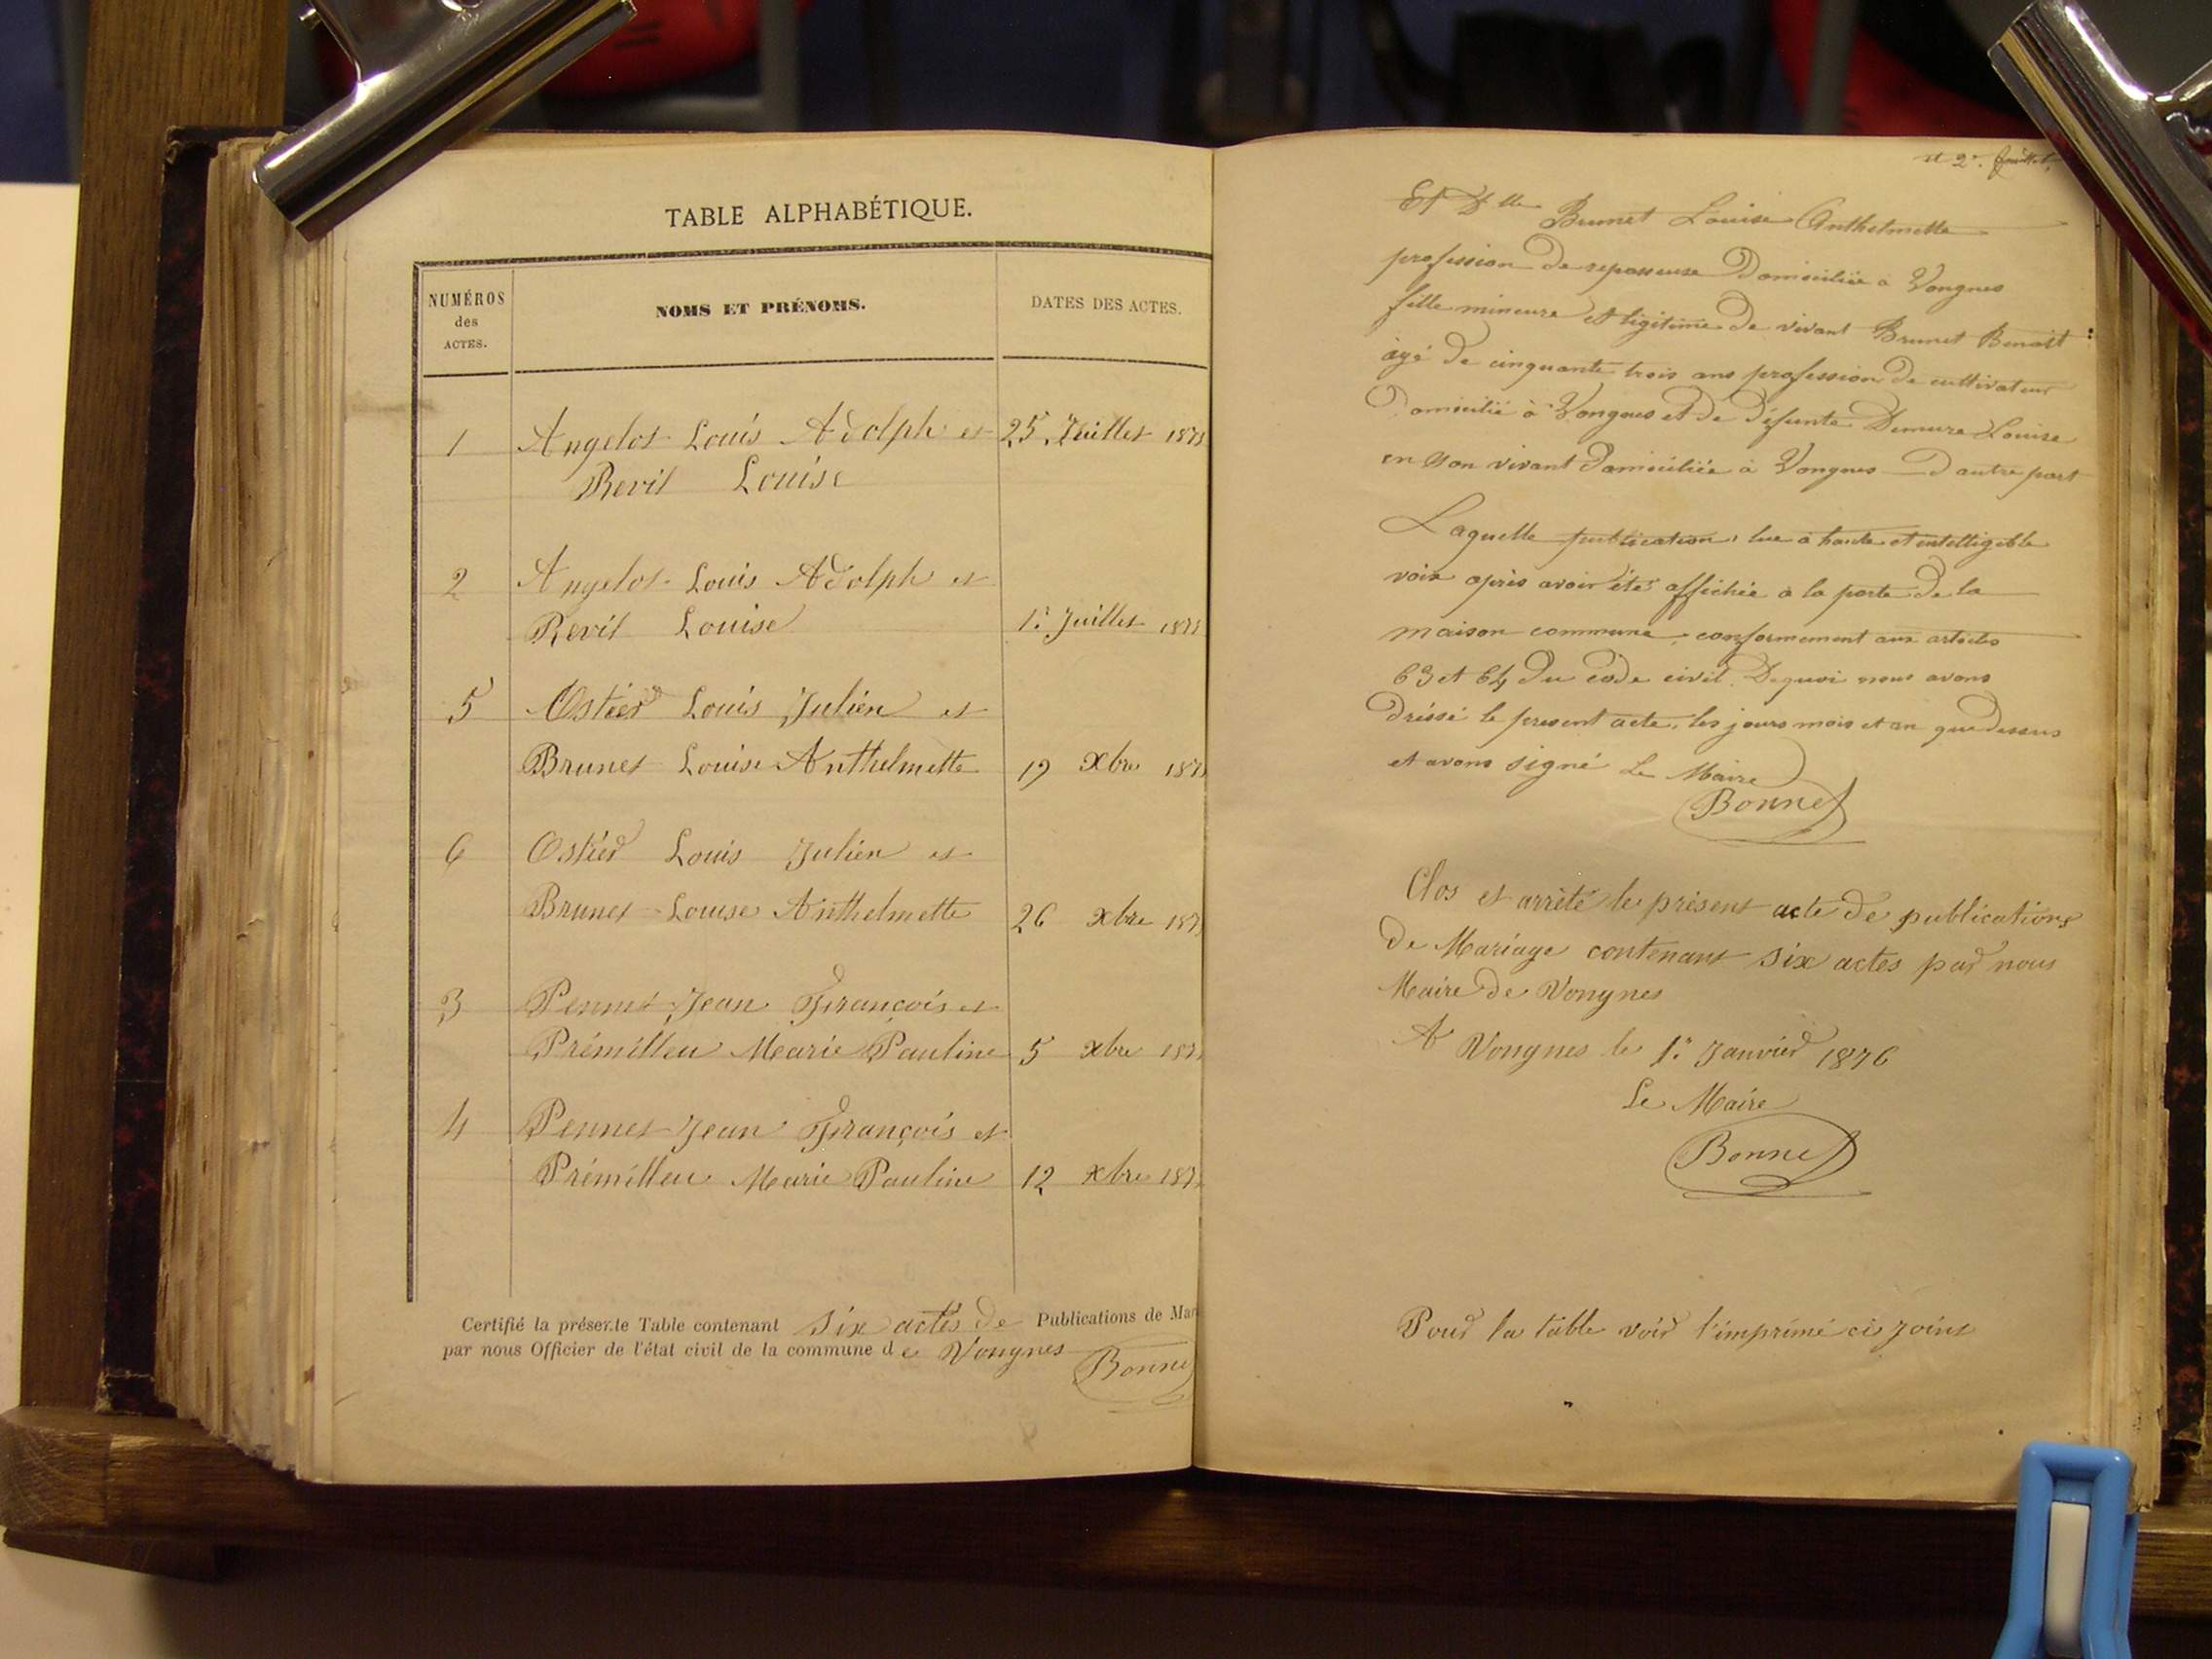 TABLE ALPHABÉTIQUE.
NUMÉROS des ACTES.
NOMS ET PRÉNOMS.
DATES DES ACTES.
1 Angelot Louis Adolph et 25 Juillet 187
Revil Louise
2 Angelot Louis Adolph et
Revil Louise 1er Juillet 187
5 Ostier Louis Julien et
Brunet Louise Anthelmette 19 Xbre 187
6 Ostier Louis Julien et
Brunet Louise Anthelmette 26 xbre 187
3 Pennet Jean François et
Prémilleu Marie Pauline 5 xbre 187
4 Pennet Jean François et
Prémilleu Marie Pauline 12 xbre 187
Certifié la présente Table contenant six actes de Publications de Mar
par nous Officier de l'état civil de la commune de Vongnes
Bonne
et 2e. feuillet.
Et Dlle Brunet Louise Anthelmette
profession de repasseuse Domiciliée à Vongnes
fille mineure et légitime de vivant Brunet Benoit
âgé de cinquante trois ans profession de cultivateur
Domicilié à Vongnes et de défunte Demure Louise
en son vivant Domiciliée à Vongnes D'autre part
Laquelle publication, lue à haute et intelligible
voix après avoir été affichée à la porte de la
maison commune, conformement aux articles
63 et 64 du code civil. De quoi nous avons
dréssé le present acte, les jours mois et an que dessus
et avons signé Le Maire
Bonnet
Clos et arrêté le présent acte de publications
de Mariage contenant six actes par nous
Maire de Vongnes
A Vongnes le 1er Janvier 1876
Le Maire
Bonnet
Pour la table voir l'imprimé ci joint